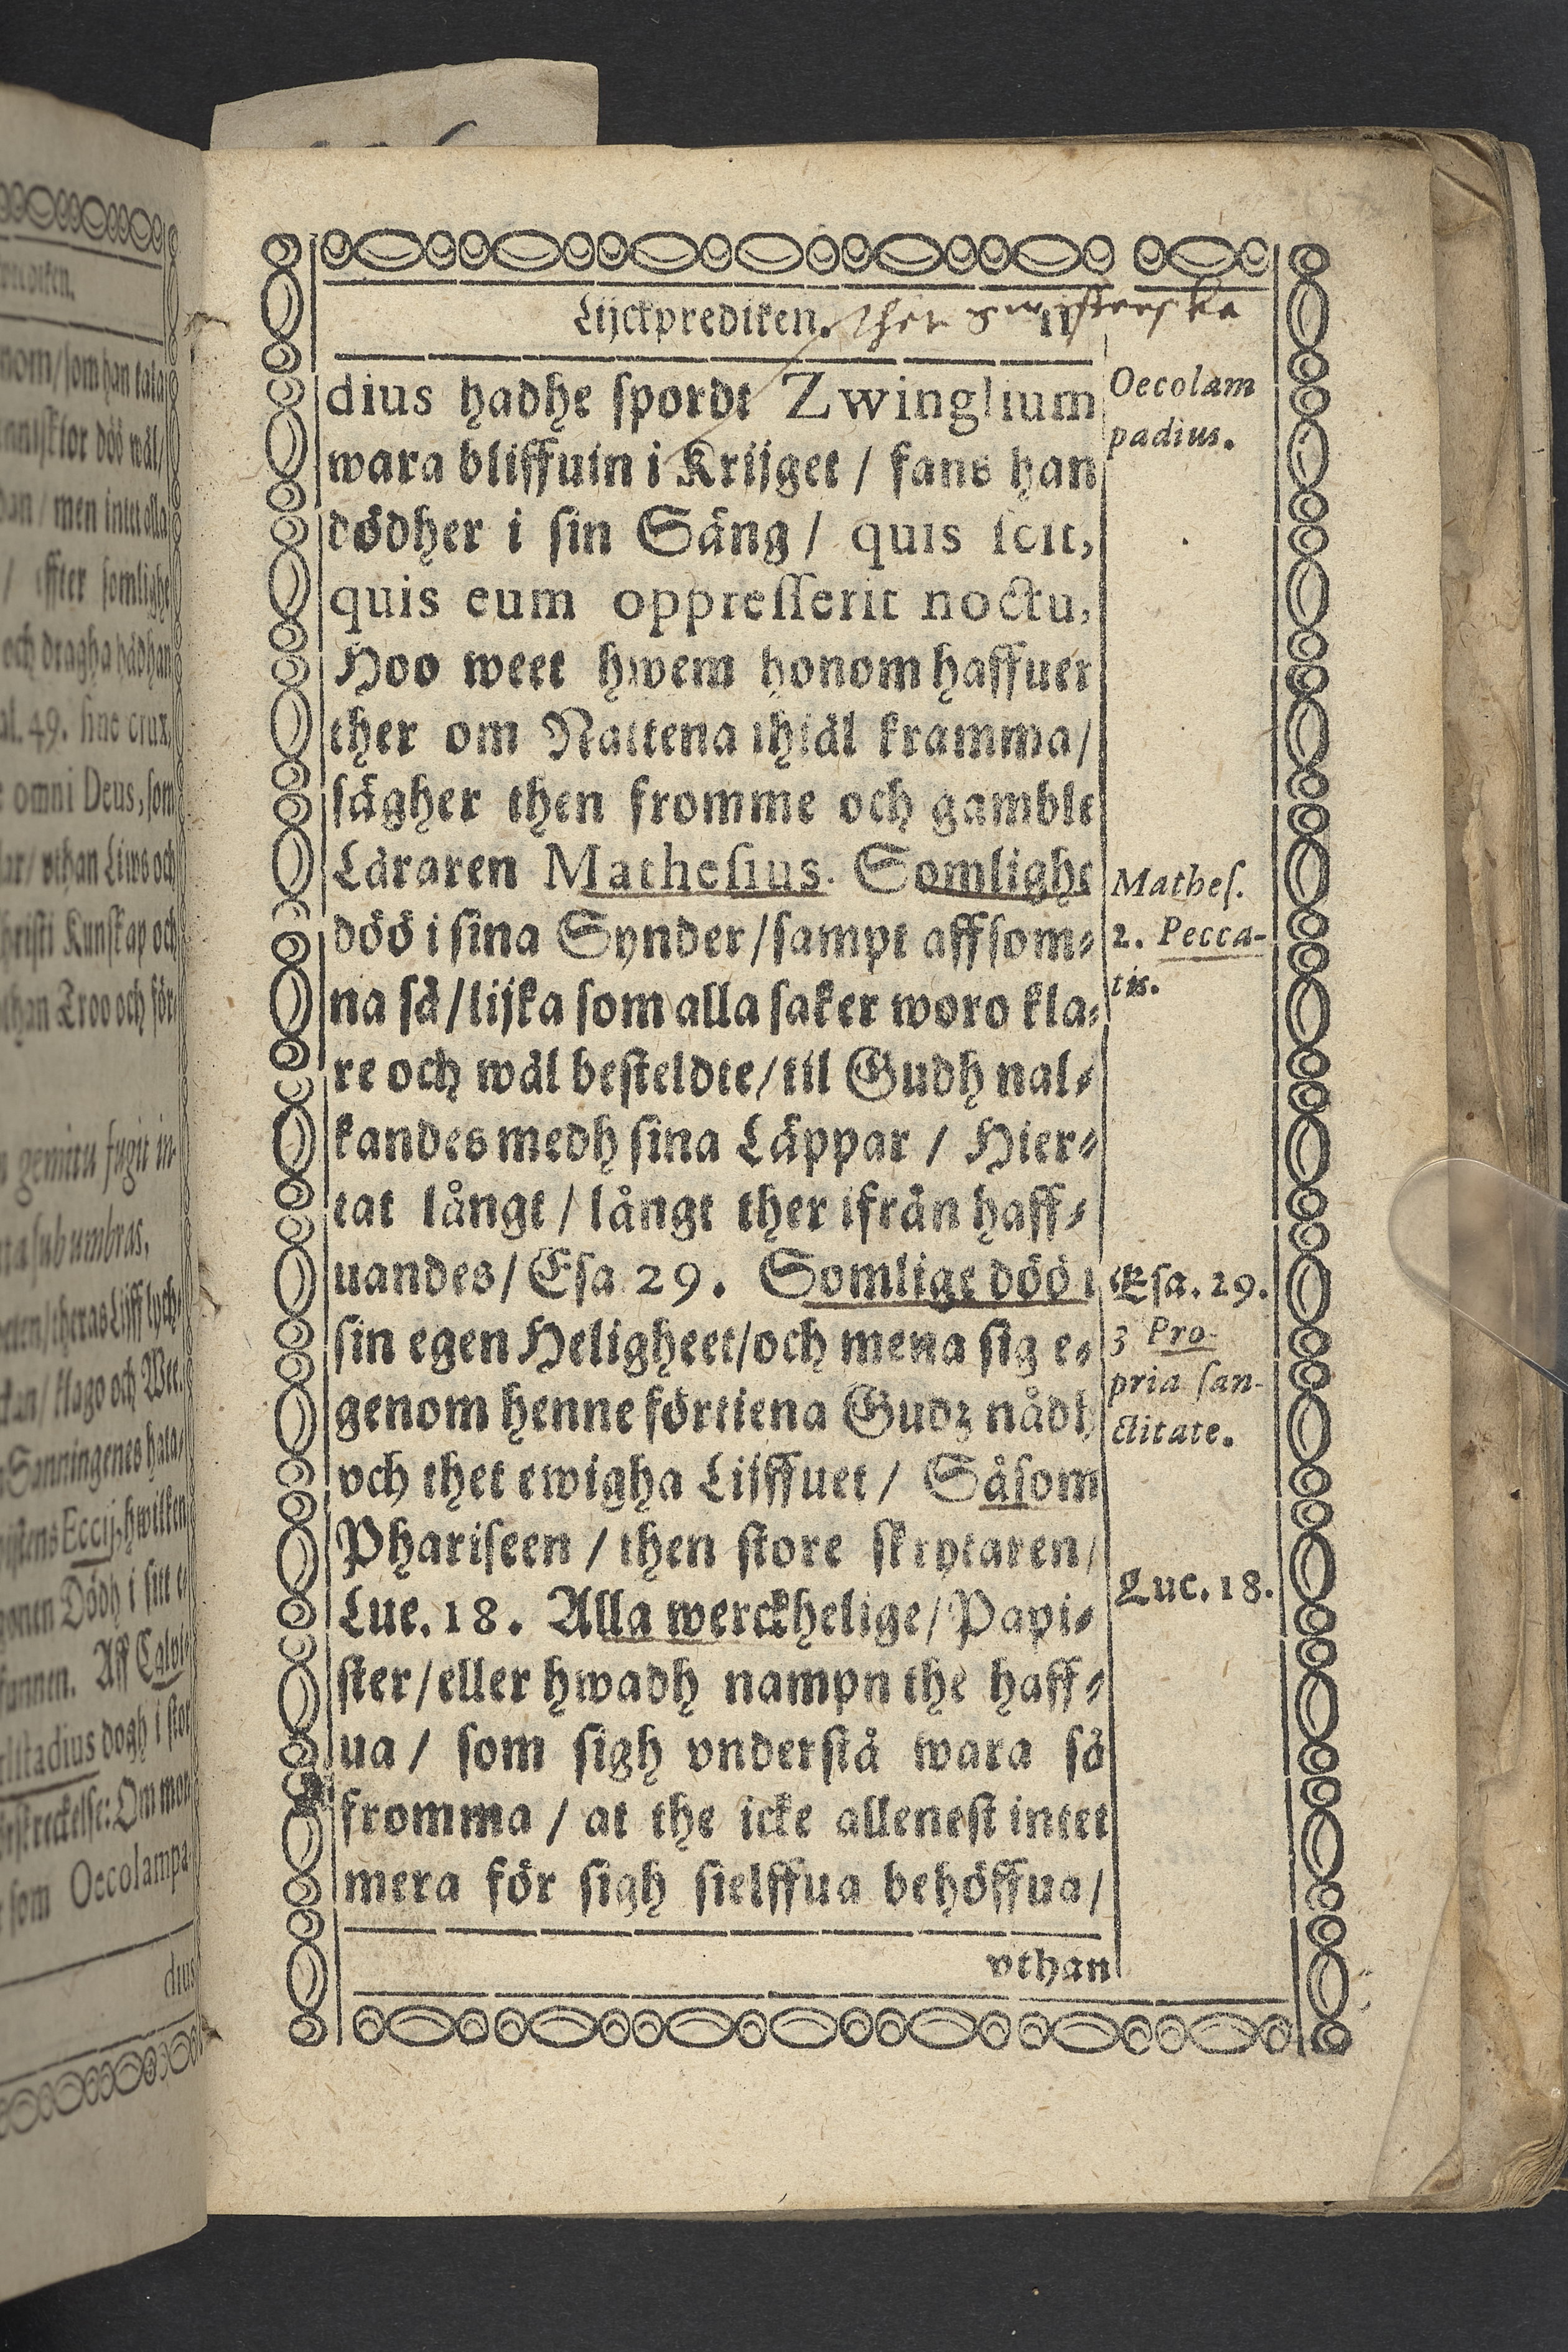 Lijckprediken. 11
dius hadhe ſpordt Zwinglium
wara bliffuin i Krijget / fans han
dödher i ſin Säng / quis ſcit,
quis eum oppreſſerit noctu,
Hoo weet hwem honom haffuer
ther om Nattena ihiäl kramma/
ſägher then fromme och gamble
Läraren Matheſius. Somlighe
döö i ſina Synder/ſampt affſom⸗
na så/lijka ſom alla ſaker woro kla⸗
re och wäl beſteldte/til Gudh nal⸗
kandes medh ſina Läppar / Hier⸗
tat långt / långt ther ifrån haff⸗
uandes/ Eſa 29. Somlige döö i
ſin egen Heligheet/och mena ſig e⸗
genom henne förtiena Gudz nådh
och thet ewigha Lijffuet / Såſom
Phariſeen / then ſtore ſkrytaren/
Luc. 18. Alla werckhelige/ Papi⸗
ſter/eller hwadh nampn the haff⸗
ua / ſom ſigh vnderſtå wara ſå
fromma / at the icke alleneſt intet
mera för ſigh ſielffua behöffua/
vthan
Oecolam
padius.
Matheſ.
2. Pecca-
tis.
Eſa. 29.
3 Pro-
pria ſan-
ctitate.
Luc. 18.